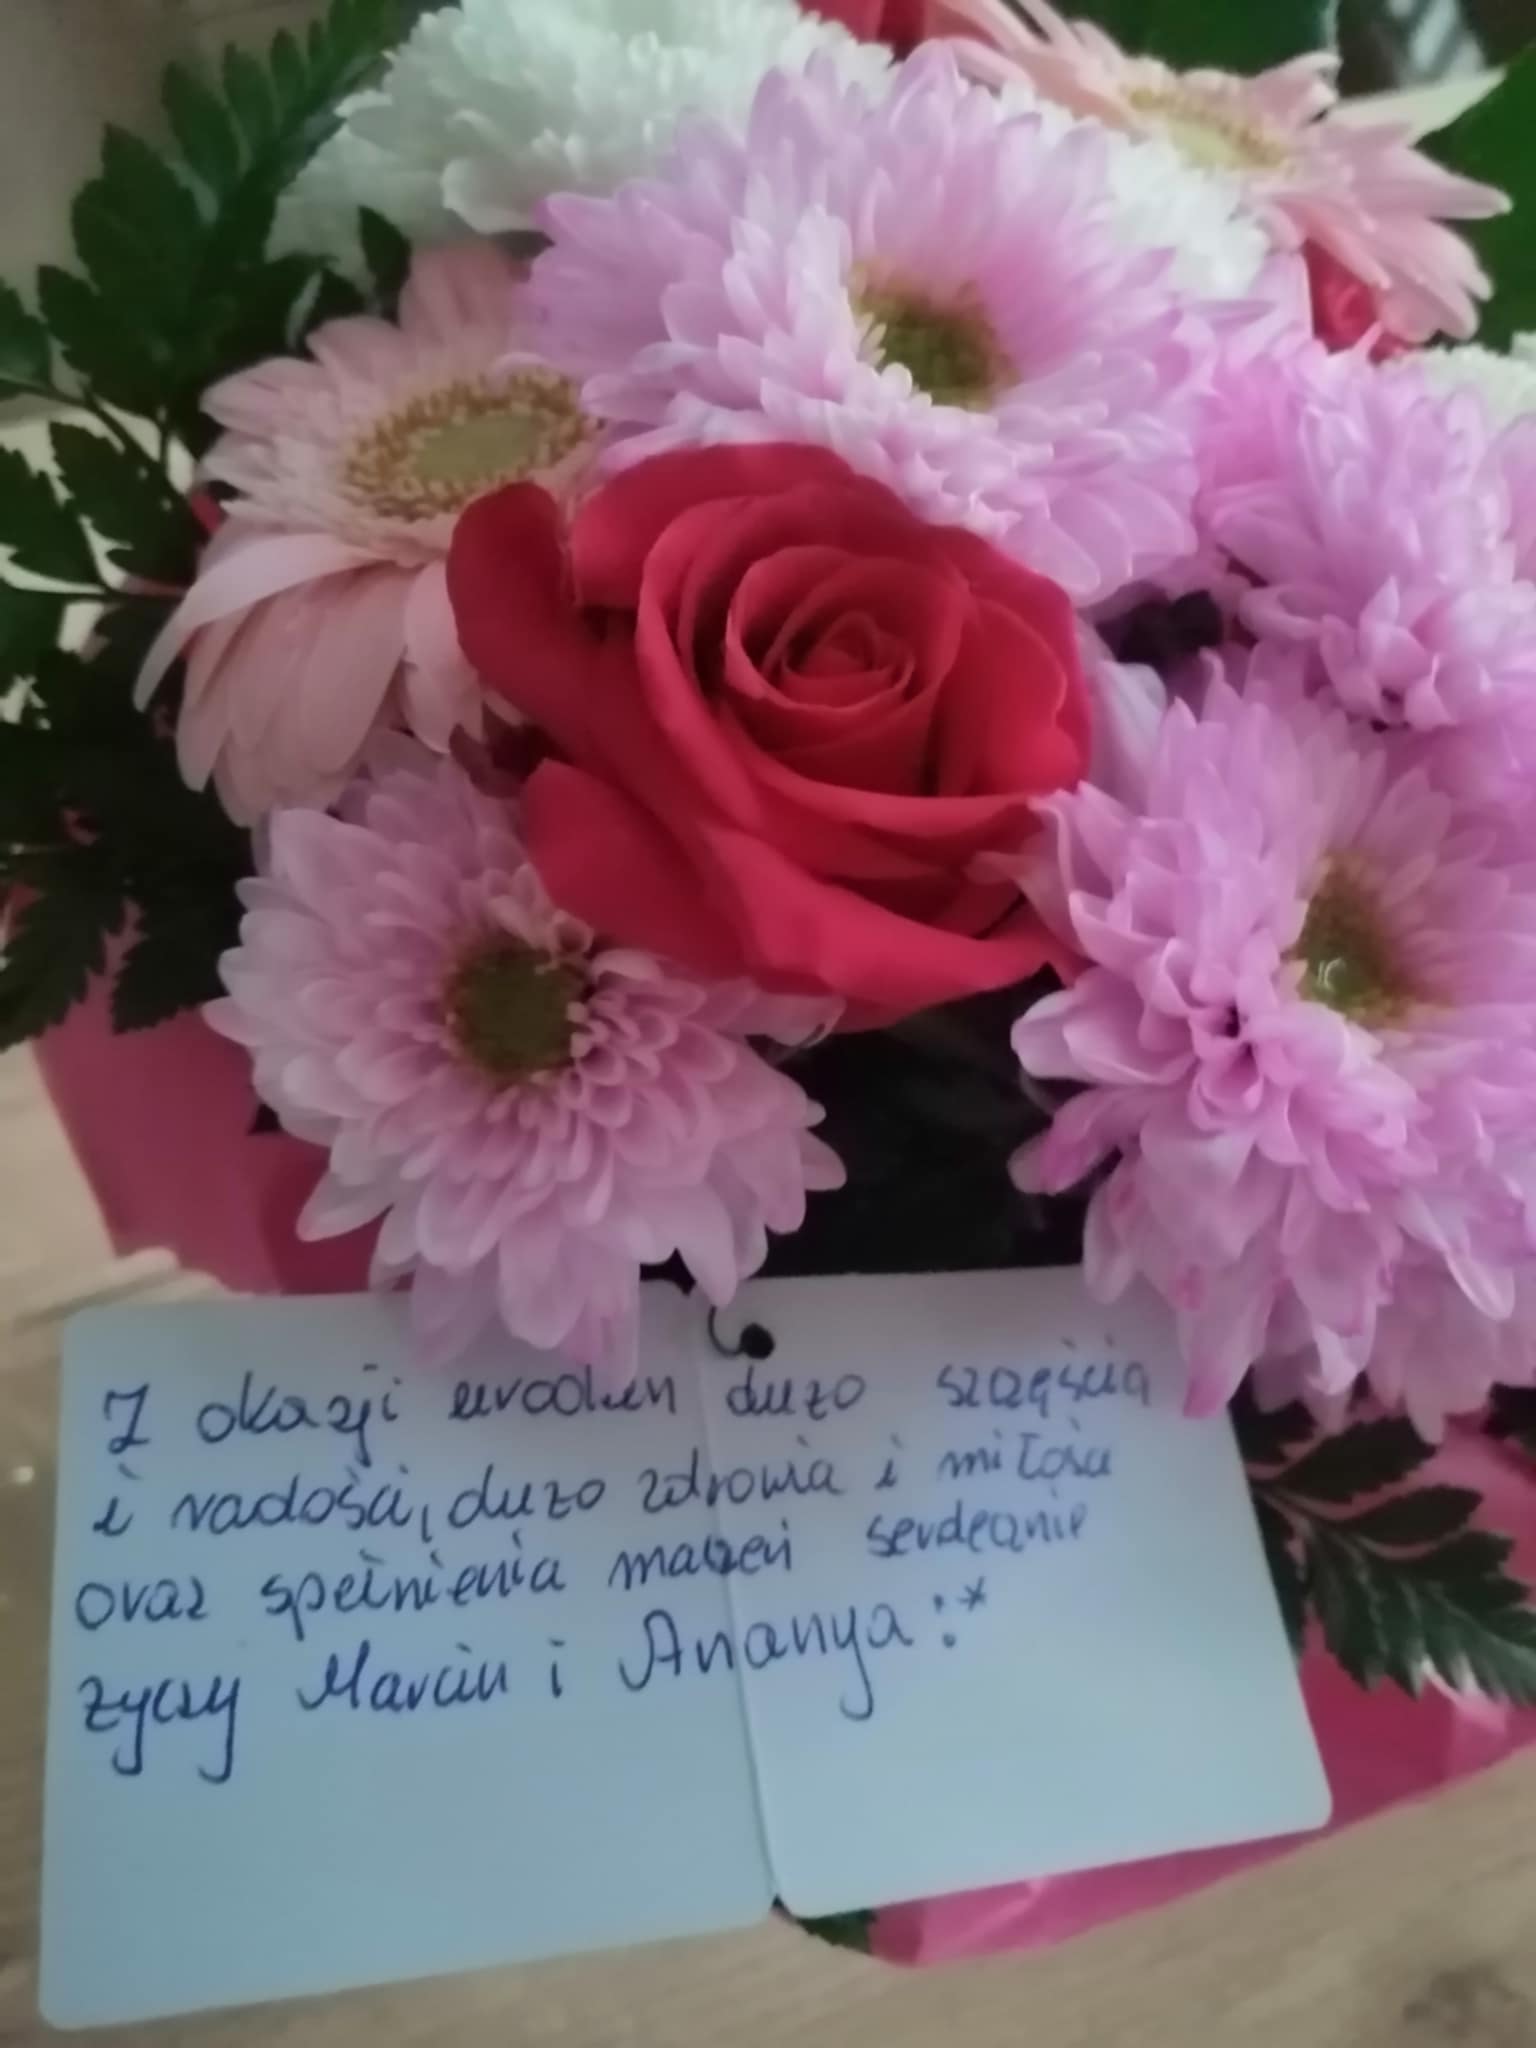 Z okazji urodzin dużo szczęścia
i radości, dużo zdrowia i miłości
oraz spełnienia marzeń serdecznie
życzy Marcin i Ananya :*